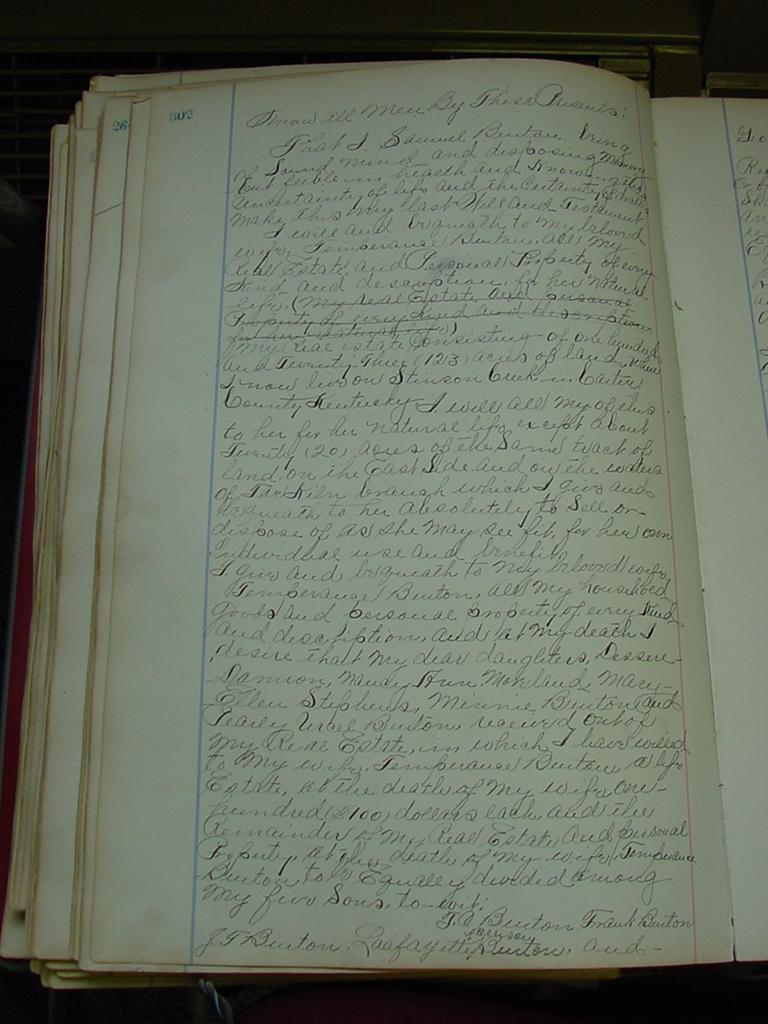 302
26
Know All Men By These Presents:
That I, Samuel Burton, being
of Sound mind and disposing Memory
but feeble in health and Knowing the
uncertainty of life and the Certainty of death
make this my last Will and Testament
I will and bequeath to my beloved
wife, Temperance Burton, All my
Real Estate, and Personal Property of every
Kind and description for her natural
life. (My real Estate and personal
Property of every Kind and description
for her natural life)
My real estate Consisting of one hundred
and Twenty Three (123) acres of land, where
I now live on Stinson Creek in Carter
County Kentucky I will all my of this
to her for her natural life except about
Twenty (20) acres of the Same tract of
land on the East Side and on the waters
of Tar Kiln branch which I give and
bequeath to her absolutely to Sell or
dispose of as she may see fit, for her own
individual use and benefit.
I give and bequeath to my beloved wife,
Temperance Burton, all my household
goods and personal property, of every Kind
and description, and at my death I
desire that my dear daughters,
Nancy Ann Moreland, Mary
Ellen Stephens, Minnie Burton and
Pearly Burton, received out of
My Real Estate, in which I have willed
to my wife, Temperance Burton, a life
Estate, at the death of my wife, one
hundred ($100) dollars each and the
Remainder of my Real Estate and personal
Property at the death of my wife, Temperance
Burton to Equally divided among
my five Sons, to-wit:
Burton, Frank Burton
Harrison
J. T. Burton. Laafayette Burton, and
Geo